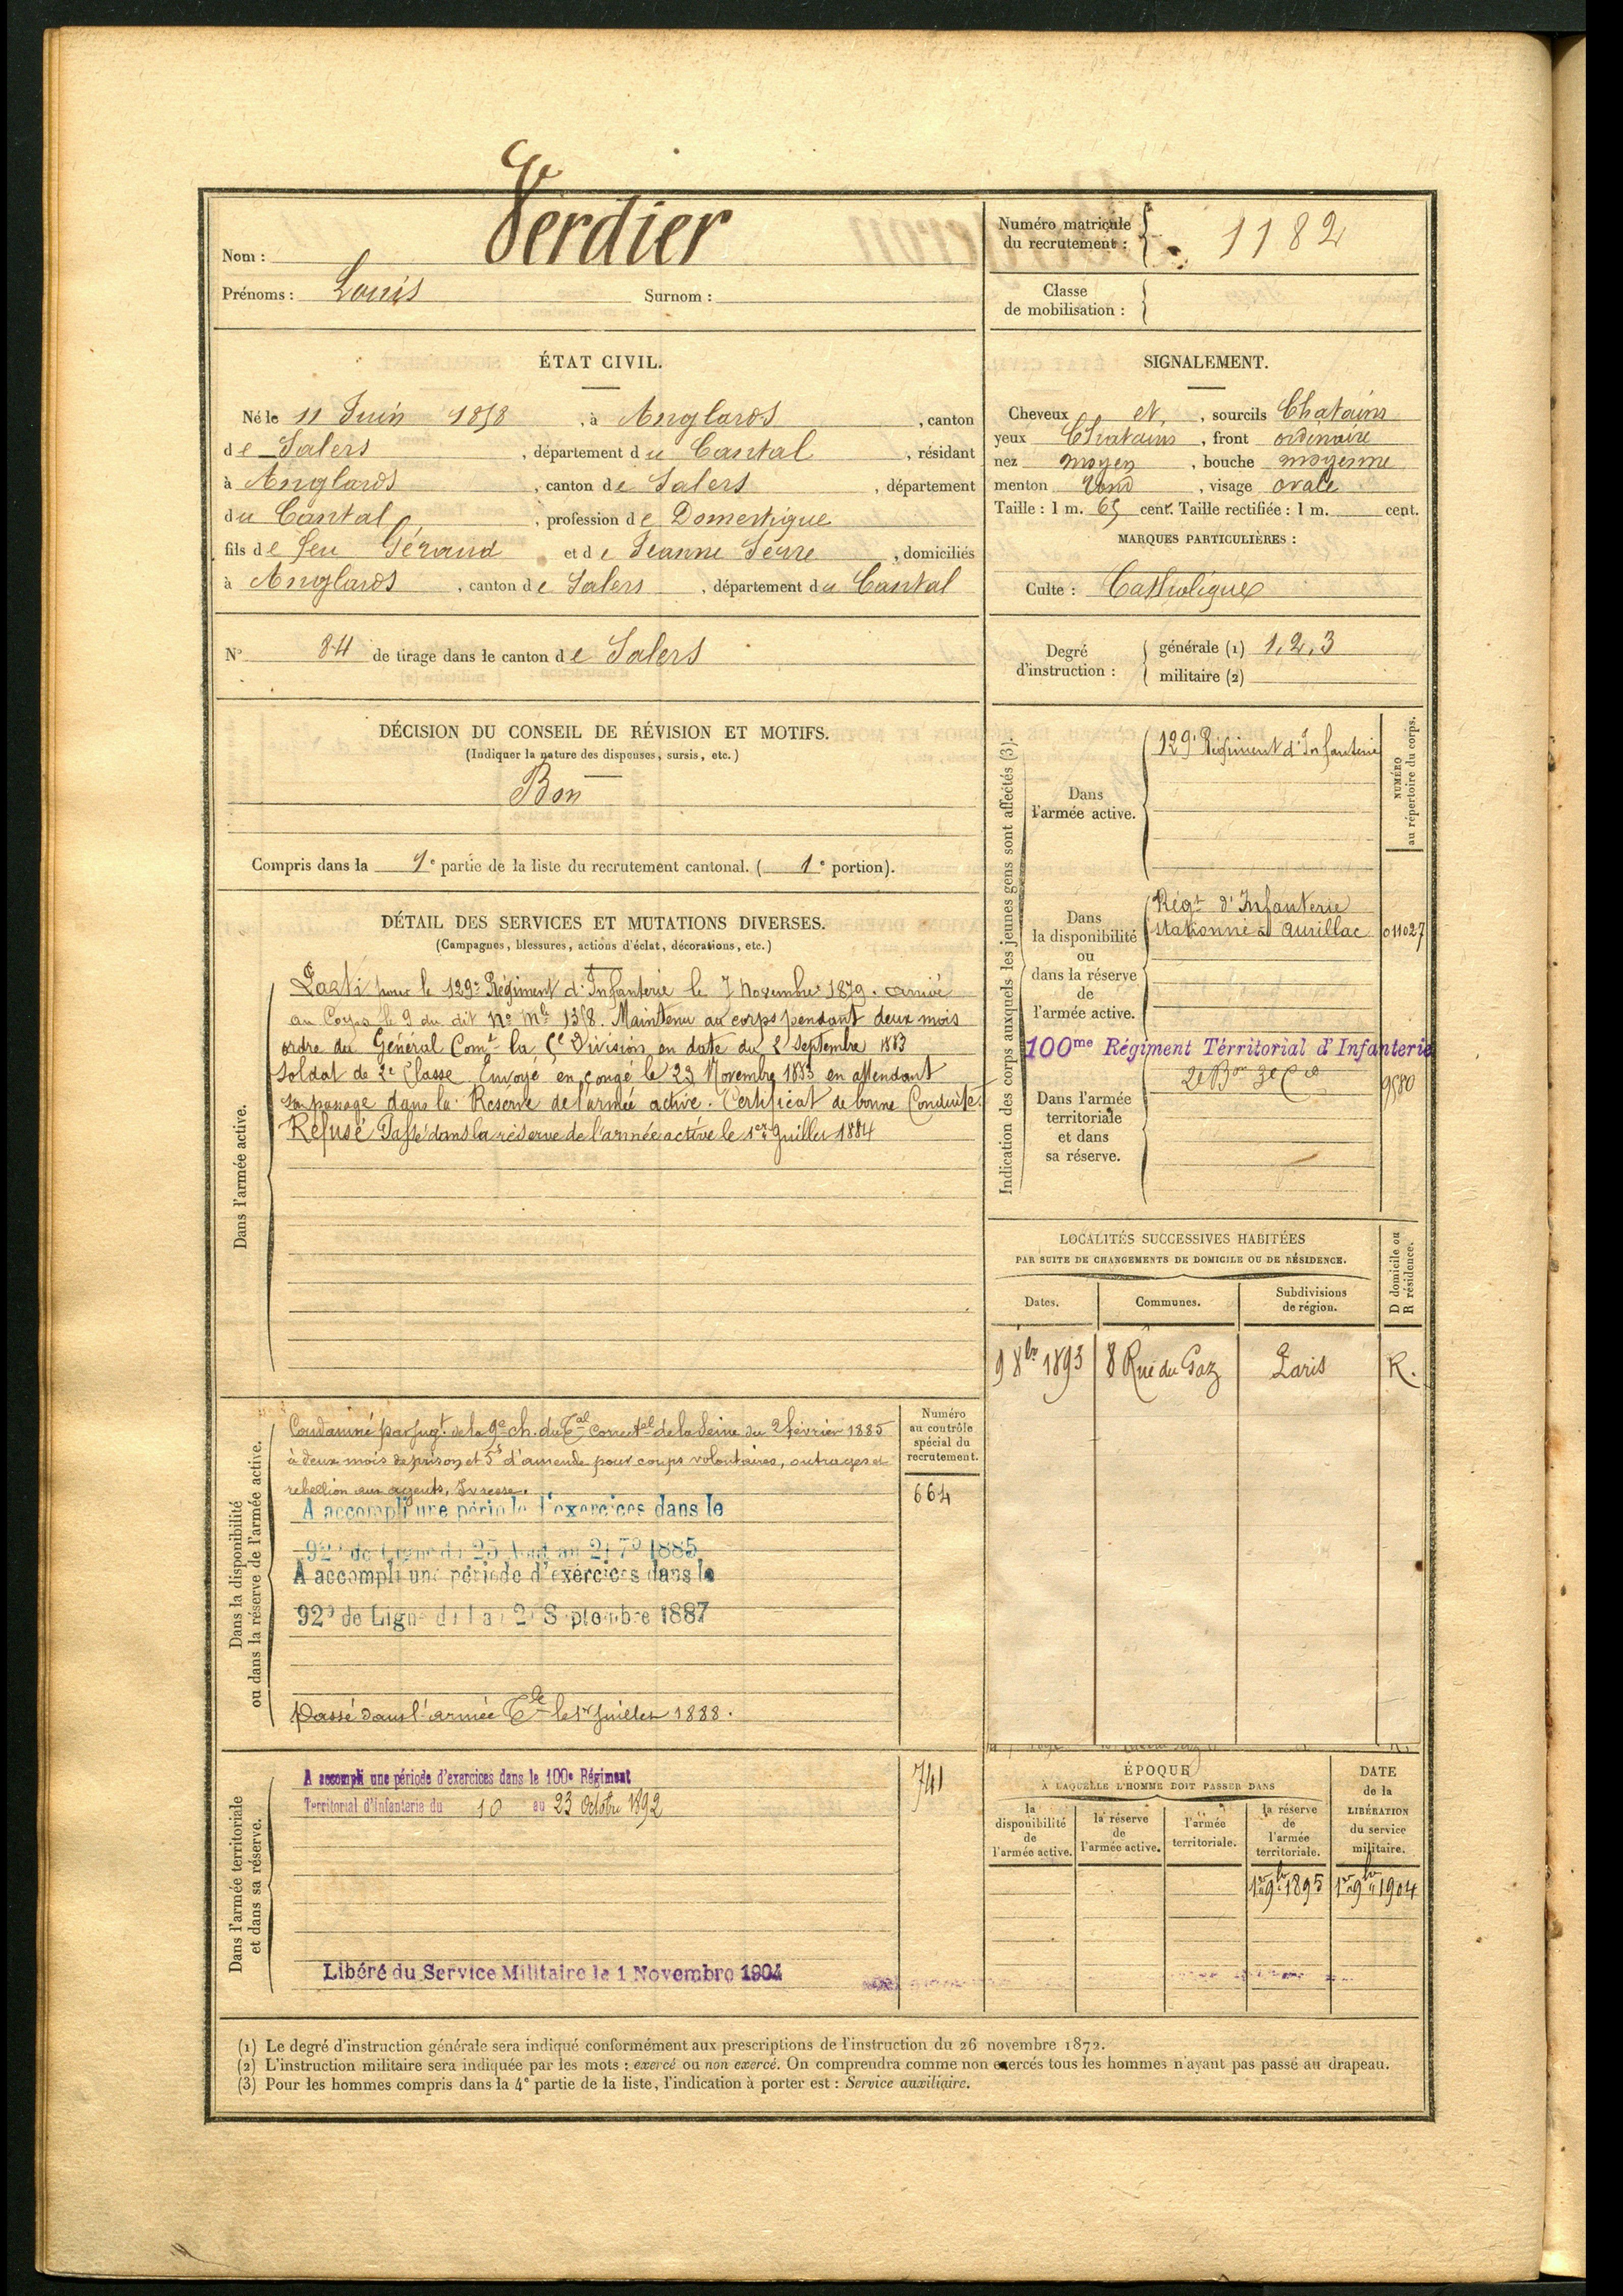 Verdier
Nom :
Prénoms : Louis Surnom :
Numéro matricule
du recrutement : 1182
Classe
de mobilisation :
ÉTAT CIVIL.
Né le 11 Juin 1858, à Anglards, canton
de Salers, département du Cantal, résidant
à Anglards, canton de Salers, département
du Cantal, profession de Domestique
fils de feu Géraud et de Jeanne Serre, domiciliés
à Anglards, canton de Salers, département du Cantal
SIGNALEMENT.
Cheveux et, sourcils Chatains
yeux Chatains, front ordinaire
nez moyen, bouche moyenne
menton rond, visage ovale
Taille : 1 m. 65 cent. Taille rectifiée : 1 m. cent.
MARQUES PARTICULIÈRES :
Culte : Catholique
N° 84 de tirage dans le canton de Salers
Degré
d'instruction :
générale (1) 1, 2, 3
militaire (2)
DÉCISION DU CONSEIL DE RÉVISION ET MOTIFS.
(Indiquer la nature des dispenses, sursis, etc.)
Bon
Compris dans la 1e partie de la liste du recrutement cantonal. ( 1e portion).
DÉTAIL DES SERVICES ET MUTATIONS DIVERSES.
(Campagnes, blessures, actions d'éclat, décorations, etc.)
Dans l'armée active.
Parti pour le 129e Régiment d'Infanterie le 7 Novembre 1879. arrivé
au Corps le 9 du dit No Mle 1358. Maintenu au corps pendant deux mois
ordre du Général Comt la 5e Division en date du 2 Septembre 1883
Soldat de 2e Classe Envoyé en congé le 23 Novembre 1883 en attendant
son passage dans la Réserve de l'armée active. Certificat de bonne Conduite
Refusé Passé dans la réserve de l'armée active le 1er Juillet 1884
Indication des corps auxquels les jeunes gens sont affectés (3).
NUMÉRO
au répertoire du corps.
Dans
l'armée active.
129e Régiment d'Infanterie
Dans
la disponibilité
ou
dans la réserve
de
l'armée active.
Régt d'Infanterie
stationné à Aurillac 011027
100me Régiment Térritorial d'Infanterie
2e Bon 3e Cie 9580
Dans l'armée
territoriale
et dans
sa réserve.
LOCALITÉS SUCCESSIVES HABITÉES
PAR SUITE DE CHANGEMENTS DE DOMICILE OU DE RÉSIDENCE.
Dates. Communes. Subdivisions
de région.
D domicile ou
R résidence.
9 8bre 1893 8 Rue du Gaz Paris R.
Dans la disponibilité
ou dans la réserve de l'armée active.
Condamné par jugt de la 9e ch. du Tal Correctel de la Seine du 2 février 1885
à deux mois de prison et 5f d'amende pour coups volontaires, outrages et
rebellion aux agents, Ivresse.
A accompli une période d'exercices dans le
92e de Ligne du 25 Aout au 21 7e 1885
A accompli une période d'exércices dans le
92e de Ligne Septembre 1887
Passé dans l'armée Tle le 1er Juillet 1888.
Numéro
au contrôle
spécial du
recrutement.
664
Dans l'armée territoriale
et dans sa réserve.
A accompli une période d'exercices dans le 100e Régiment
Territorial d'Infanterie du 10 au 23 Octobre 1892
741
Libéré du Service Militaire le 1 Novembre 1904
ÉPOQUE
À LAQUELLE L'HOMME DOIT PASSER DANS
la
disponibilité
de
l'armée active.
la réserve
de
l'armée active.
l'armée
territoriale.
la réserve
de
l'armée
territoriale.
DATE
de la
LIBÉRATION
du service
militaire.
1er 9bre 1895 1er 9bre 1904
(1) Le degré d'instruction générale sera indiqué conformément aux prescriptions de l'instruction du 26 novembre 1872.
(2) L'instruction militaire sera indiquée par les mots : exercé ou non exercé. On comprendra comme non exercés tous les hommes n'ayant pas passé au drapeau.
(3) Pour les hommes compris dans la 4e partie de la liste, l'indication à porter est : Service auxiliaire.